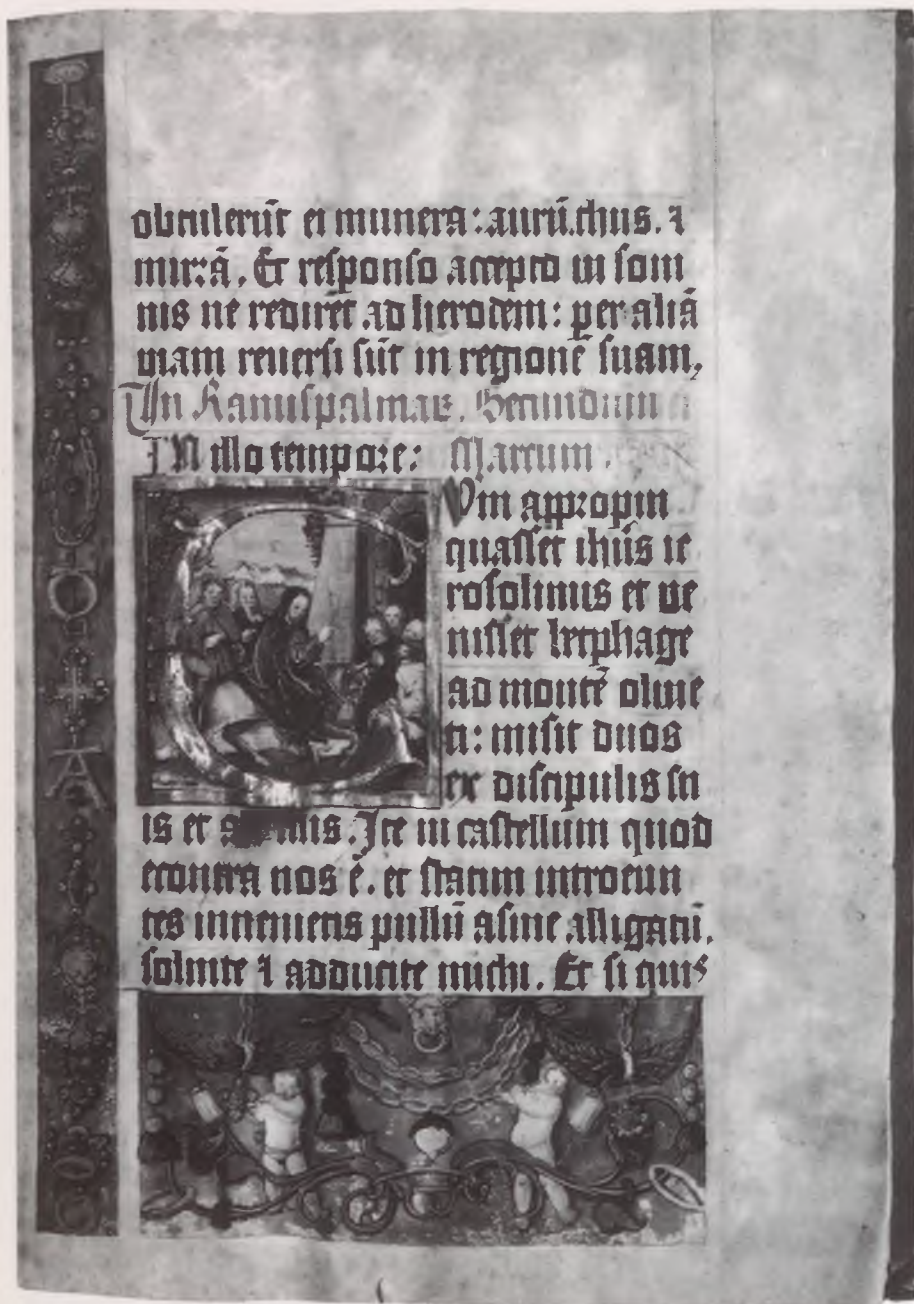 obtulerūt ei munera: aurū. thus. ⁊
mirrā. Et responso accepto in som
nis ne redirēt ad herodem: per aliā
uiam reuersi sūt in regionē suam,
In Ramispalmar. Secundum
IN illo tempore: Marcum.
Cum appropin
quasset ihūs ie
rosolimis et ue
nisset betphage
ad montē oliue
ti: misit duos
ex discipulis su
is et Ite in castellum quod
econtra uos ē. et statim introeun
tes inuenietis pullū asine alligatū.
soluite ⁊ adducite michi. Et si quis